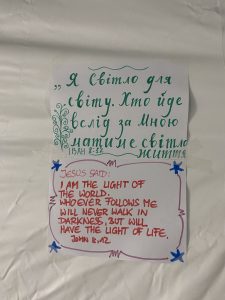 „Я Світло для
світу. Хто йде
вслід за Мною
матиме світло
життя
ІВАН 8:32
JESUS SAID:
I AM THE LIGHT OF
THE WORLD.
WHOEVER FOLLOWS ME
WILL NEVER WALK IN
DARKNESS, BUT WILL
HAVE THE LIGHT OF LIFE.
JOHN 8,12